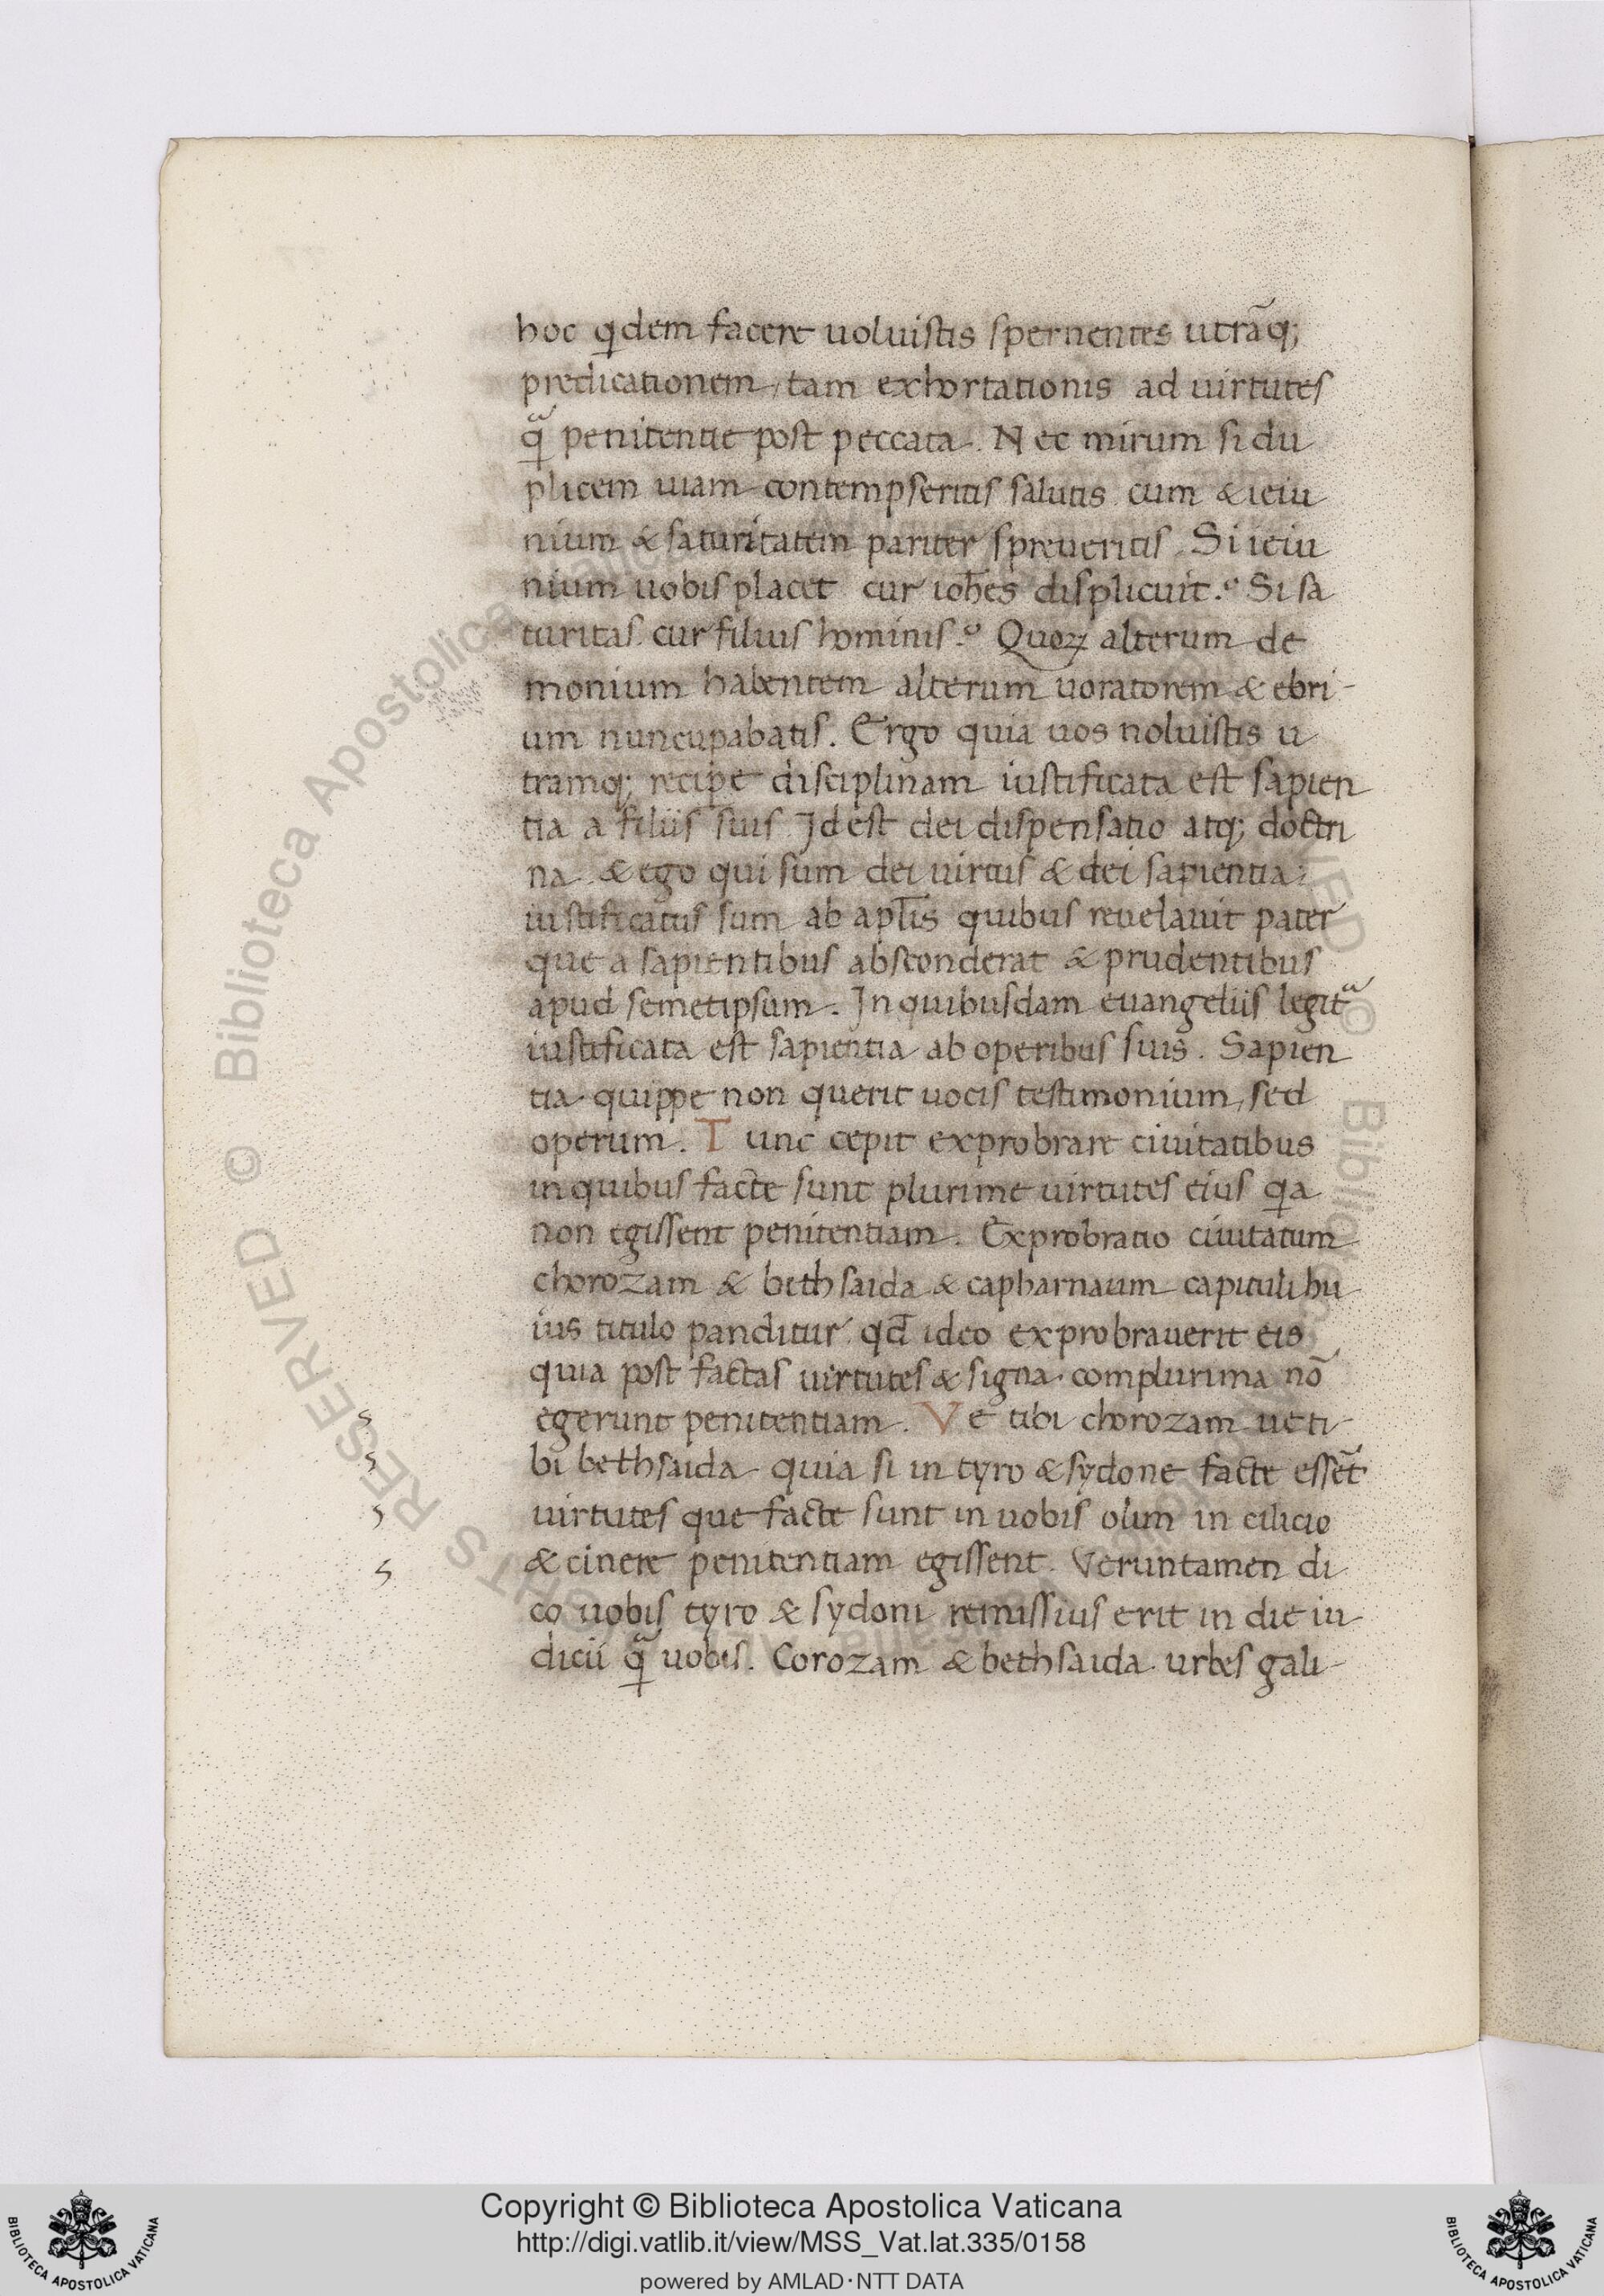 hoc qdem facere uoluistis spernentes utrāq;
predicationem, tam exhortationis ad uirtutes
qᷓ penitentie post peccata. Nec mirum si du
plicem uiam contempseritis salutis. cum & ieiu
nium & saturitatem pariter spreueritis. Si ieiu
nium uobis placet cur ioh̅es displicuit.° Si sa
turitas. cur filius hominis.° Quoꝝ alterum de
monium habentem alterum uoratorem & ebri-
um nuncupabatis. Ergo quia uos noluistis u
tramq; recipe disciplinam iustificata est sapien
tia a filiis suis. Id est dei dispensatio atq; doctri
na. & ego qui sum dei uirtus & dei sapientia:
iustificatus sum ab apl̅is quibus reuelauit pater
que a sapientibus absconderat & prudentibus
apud semetipsum. In quibusdam euangeliis legitᷓ
iustificata est sapientia ab operibus suis. Sapien
tia quippe non querit uocis testimonium, sed
operum. Tunc cepit exprobrare ciuitatibus
in quibus facte sunt plurime uirtutes eius qa
non egissent penitentiam. Exprobratio ciuitatum
chorozam & bethsaida & capharnaum capituli hu
ius titulo panditur. qd̅ ideo exprobrauerit eis
quia post factas uirtutes & signa complurima nō
egerunt penitentiam. Ve tibi chorozam ue ti-
bi bethsaida quia si in tyro & sydone facte essēt
uirtutes que facte sunt in uobis olim in cilicio
& cinere penitentiam egissent. Veruntamen di
co uobis tyro & sydoni remissius erit in die iu-
dicii qᷓ uobis. Corozam & bethsaida urbes gali-
Copyright © Biblioteca Apostolica Vaticana
http://digi.vatlib.it/view/MSS_Vat.lat.335/0158
powered by AMLAD·NTT DATA